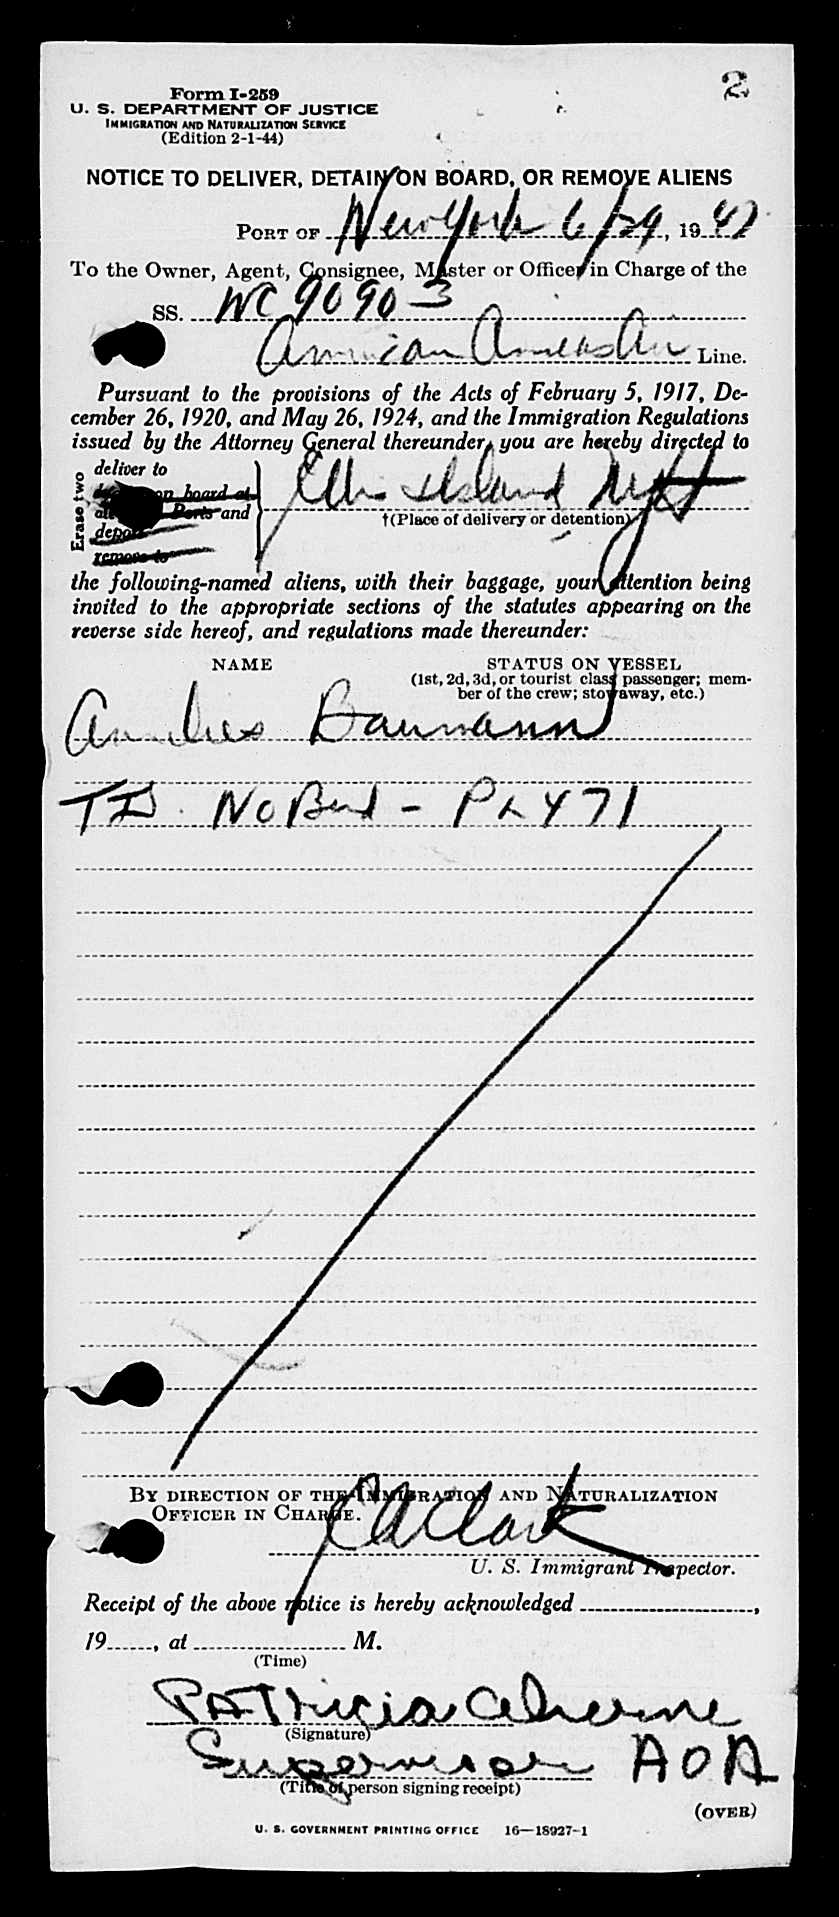 2
Form I-259
U. S. DEPARTMENT OF JUSTICE
IMMIGRATION AND NATURALIZATION SERVICE
(Edition 2-1-44)
NOTICE TO DELIVER, DETAIN ON BOARD, OR REMOVE ALIENS
PORT OF New York 6/29, 1947
To the Owner, Agent, Consignee, Master or Officer in Charge of the
SS. NC 90903
American Overseas Air Line.
Pursuant to the provisions of the Acts of February 5, 1917, De-
cember 26, 1920, and May 26, 1924, and the Immigration Regulations
issued by the Attorney General thereunder, you are hereby directed to
Erase two
deliver to
on board at
Ports and
remove to
Ellis Island
†(Place of delivery or detention)
the following-named aliens, with their baggage, your attention being
invited to the appropriate sections of the statutes appearing on the
reverse side hereof, and regulations made thereunder:
NAME STATUS ON VESSEL
(1st, 2d, 3d, or tourist class passenger; mem-
ber of the crew; stowaway, etc.)
Baumann
No 471
BY DIRECTION OF THE IMMIGRATION AND NATURALIZATION
OFFICER IN CHARGE.
Clark
U. S. Immigrant Inspector.
Receipt of the above notice is hereby acknowledged ,
19 , at M.
(Time)
Patricia Aherne
(Signature)
Supervisor AOA
(Title of person signing receipt)
(OVER)
U. S. GOVERNMENT PRINTING OFFICE 16—18927-1